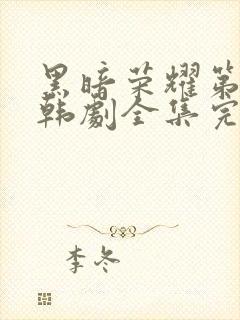 黑暗荣耀第
韩劇全集完
李冬